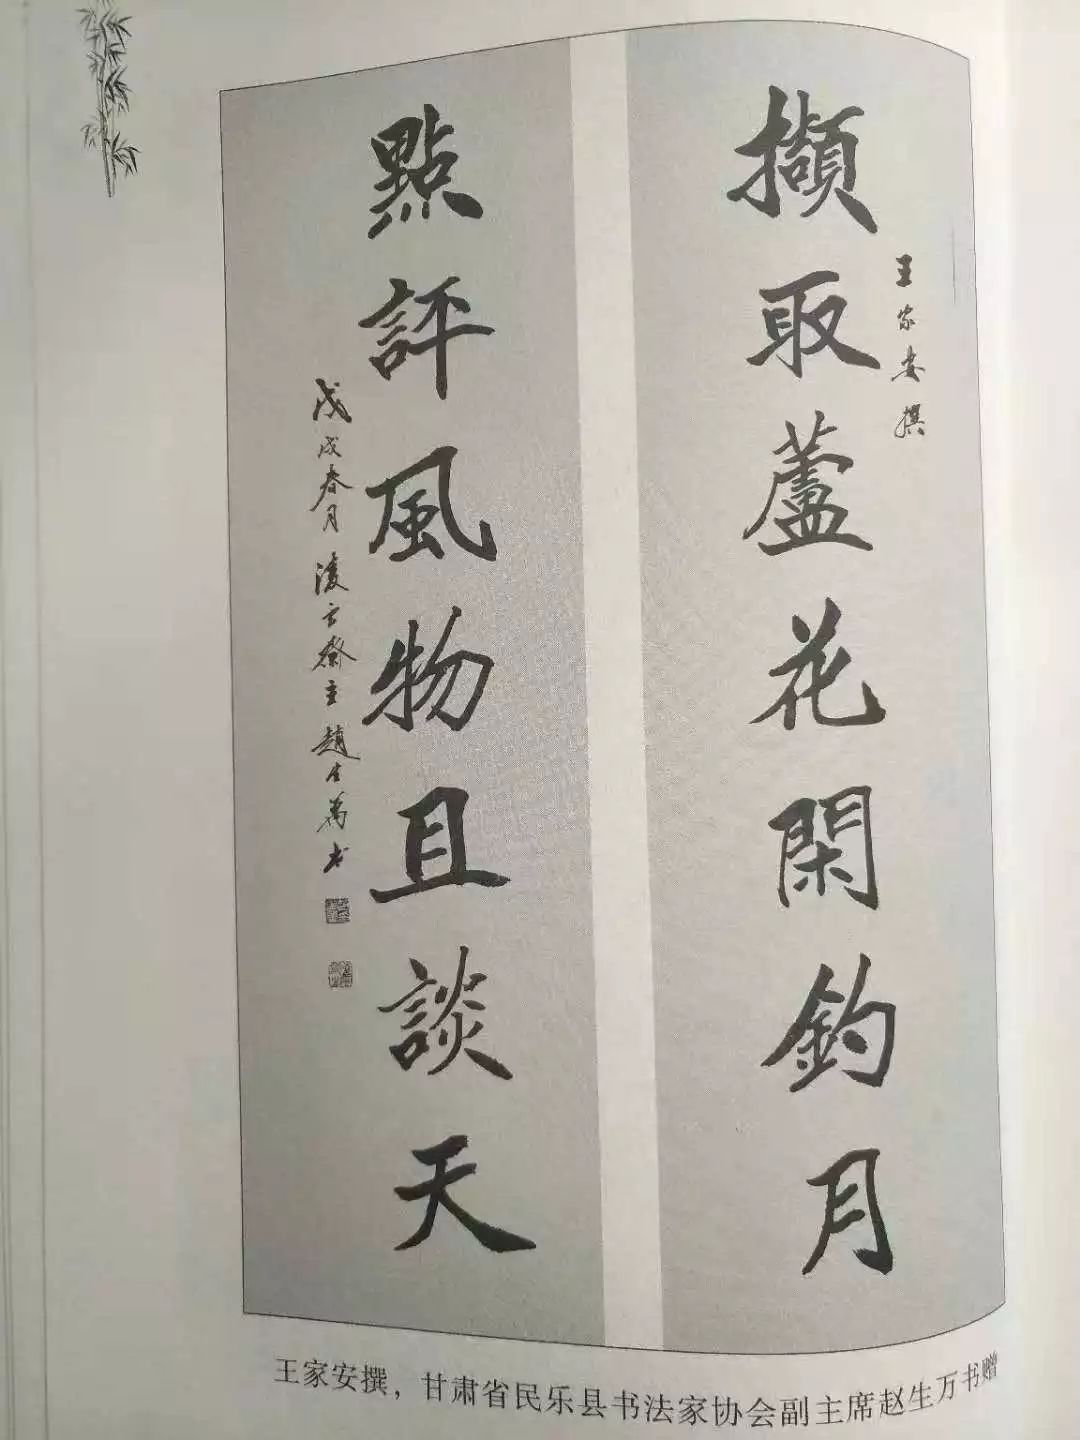 擷取蘆花閑釣月
王家安撰
點評風物且談天
戊戌春月凌云齋主趙生萬书
王家安撰，甘肃省民乐县书法家协会副主席赵生万书赠